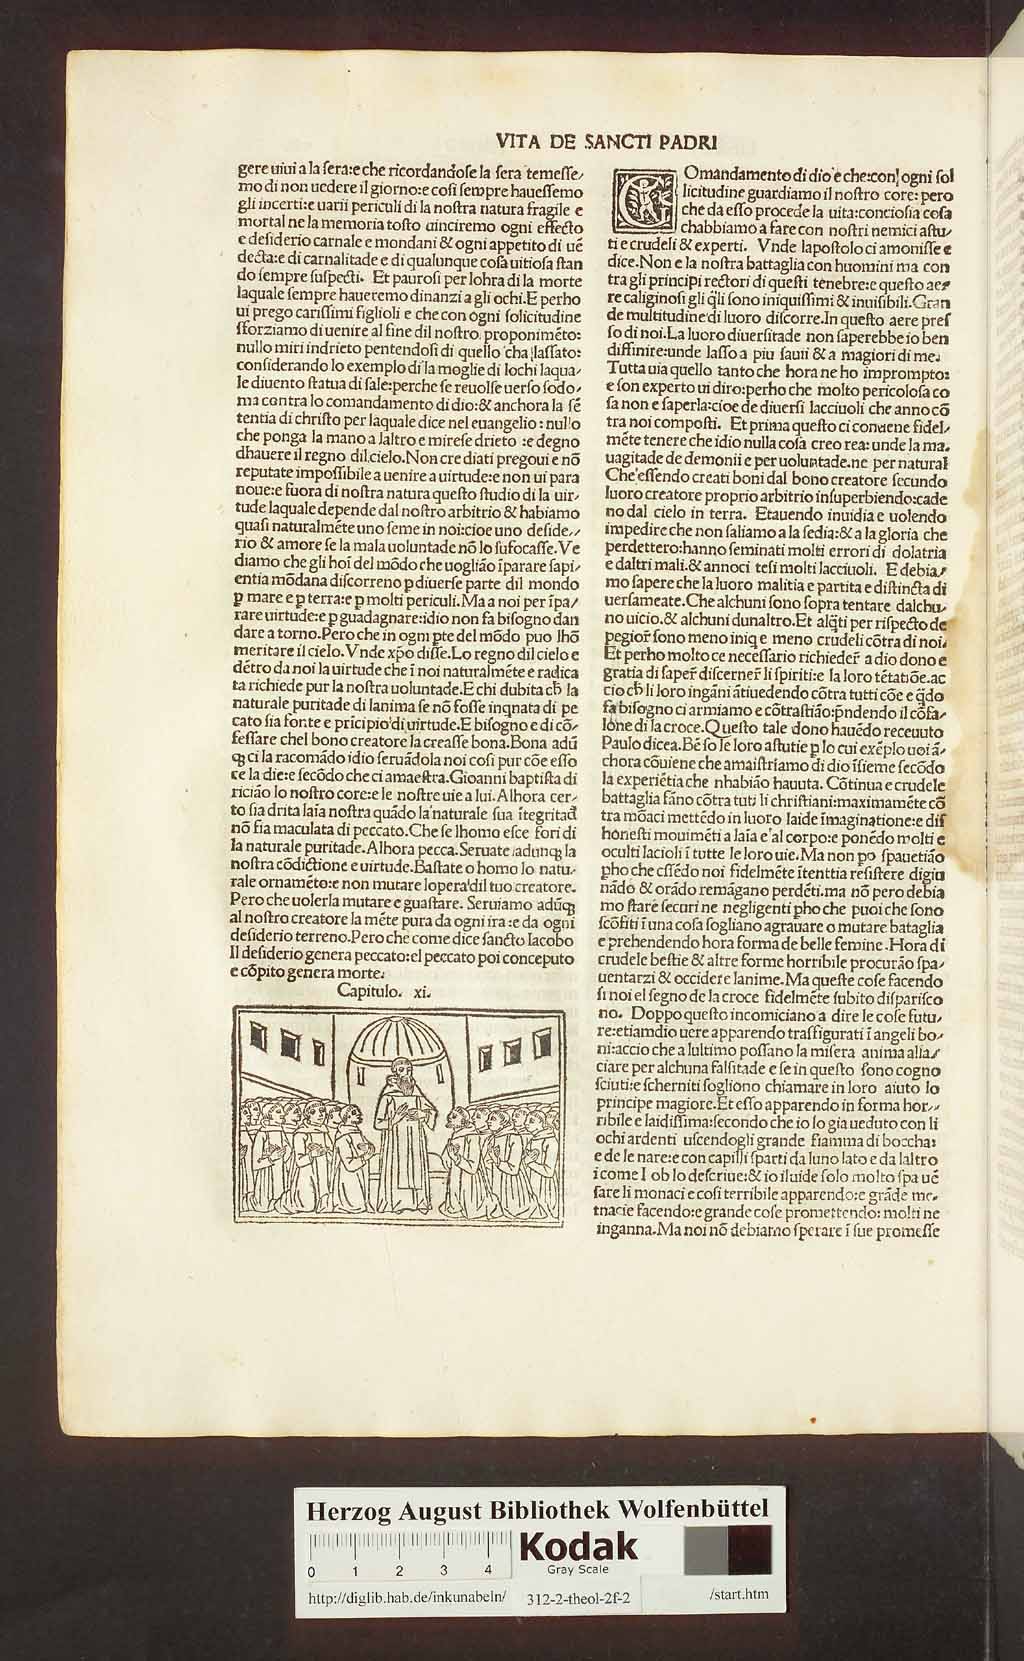 VITA DE SANCTI PADRI
gere uiui a la ſera:e che ricordandoſe la ſera temeſſe/
mo di non uedere il giorno:e coſi ſempre haueſſemo
gli incerti:e uarii periculi di la noſtra natura fragile e
mortal ne la memoria toſto uinciremo ogni effecto
e deſiderio carnale e mondani & ogni appetito di uē
decta:e di carnalitade e di qualunque coſa uitioſa ſtan
do ſempre ſuſpecti. Et pauroſi per lohra di la morte
laquale ſempre haueremo dinanzi a gli ochi.E perho
ui prego cariſſimi figlioli e che con ogni ſolicitudine
sforziamo di uenire al fine dil noſtro proponimēto:
nullo miri indrieto pentendoſi di quello cha laſſato:
conſiderando lo exemplo di la moglie di lochi laqua/
le diuento ſtatua di ſale:perche ſe reuolſe uerſo ſodo/
ma contra lo comandamento di dio:& anchora la ſē
tentia di chriſto per laquale dice nel euangelio : nullo
che ponga la mano a laltro e mireſe drieto :e degno
dhauere il regno dil cielo.Non cre diati pregoui e nō
reputate impoſſibile a uenire a uirtude:e non ui para
noue:e fuora di noſtra natura queſto ſtudio di la uir/
tude laquale depende dal noſtro arbitrio & habiamo
quaſi naturalmēte uno ſeme in noi:cioe uno deſide/
rio & amore ſe la mala uoluntade nō lo ſufocaſſe.Ve
diamo che gli hoī del mōdo che uogliāo īparare ſapi/
entia mōdana diſcorreno ꝑ diuerſe parte dil mondo
ꝑ mare e ꝑ terra:e ꝑ molti periculi.Ma a noi per īpa/
rare uirtude:e ꝑ guadagnare:idio non fa biſogno dan
dare a torno.Pero che in ogni ꝑte del mōdo puo lhō
meritare il cielo.Vnde xp̄o diſſe.Lo regno dil cielo e
dētro da noi la uirtude che ī noi naturalmēte e radica
ta richiede pur la noſtra uoluntade.E chi dubita cħ la
naturale puritade di lanima ſe nō foſſe inqnata di pe
cato ſia fonte e prīcipio di uirtude.E biſogno e di cō/
feſſare chel bono creatore la creaſſe bona.Bona adū
qꝫ ci la racomādo idio ſeruādola noi coſi pur cōe eſſo
ce la die:e ſecōdo che ci amaeſtra.Gioanni baptiſta di
riciāo lo noſtro core:e le noſtre uie a lui.Alhora cer/
to ſia drita laīa noſtra quādo la naturale ſua ītegritad
nō ſia maculata di peccato.Che ſe lhomo eſce fori di
la naturale puritade.Alhora pecca.Seruate adunqꝫ la
noſtra cōdictione e uirtude.Baſtate o homo lo natu/
rale ornamēto:e non mutare lopera dil tuo creatore.
Pero che uolerla mutare e guaſtare. Seruiamo adūqꝫ
al noſtro creatore la mēte pura da ogni ira :e da ogni
deſiderio terreno.Pero che come dice ſancto Iacobo
Il deſiderio genera peccato:el peccato poi conceputo
e cōpito genera morte.
Capitulo. xi.
COmandamento di dio e che:con ogni ſol
licitudine guardiamo il noſtro core: pero
che da eſſo procede la uita:concioſia coſa
chabbiamo a fare con noſtri nemici aſtu/
ti e crudeli & experti. Vnde lapoſtolo ci amoniſſe e
dice.Non e la noſtra battaglia con huomini ma con
tra gli principi rectori di queſti tenebre:e queſto ae/
re caliginoſi gli q̄li ſono iniquiſſimi & inuiſibili.Gran
de multitudine di luoro diſcorre.In queſto aere preſ
ſo di noi.La luoro diuerſitade non ſaperebbe io ben
diffinire:unde laſſo a piu ſauii & a magiori di me.
Tutta uia quello tanto che hora ne ho impromptο:
e ſon experto ui diro:perho che molto pericoloſa co
ſa non e ſaperla:cioe de diuerſi lacciuoli che anno cō
tra noi compoſti. Et prima queſto ci conuene fidel/
mēte tenere che idio nulla coſa creo rea: unde la ma.
uagitade de demonii e per uoluntade.ne per natural
Che eſſendo creati boni dal bono creatore ſecundo
luoro creatore proprio arbitrio inſuperbiendo:cade
no dal cielo in terra. Etauendo inuidia e uolendo
impedire che non ſaliamo a la ſedia:& a la gloria che
perdettero:hanno ſeminati molti errori di dolatria
e daltri mali.& annoci teſi molti lacciuoli. E debia/
mo ſapere che la luoro malitia e partita e diſtincta di
uerſameate.Che alchuni ſono ſopra tentare dalchu/
no uicio.& alchuni dunaltro.Et alq̄ti per riſpecto de
pegior̄ ſono meno iniq e meno crudeli cōtra di noi.
Et perho molto ce neceſſario richieder̄ a dio dono e
gratia di ſaper̄ diſcerner̄ li ſpiriti:e la loro tētatiōe.ac
cio cħ li loro ingāni ātiuedendo cōtra tutti cōe e q̄do
fa biſogno ci armiamo e cōtraſtiāo:p̄ndendo il cōfa/
lone di la croce.Queſto tale dono hauēdo receuuto
Paulo dicea.Bē ſo le loro aſtutie ꝑ lo cui exēplo uoi ā/
chora cōuiene che amaiſtriamo di dio īſieme ſecōdo
la experiētia che nhabiāo hauuta. Cōtinua e crudele
battaglia fāno cōtra tuti li chriſtiani:maximamēte cō
tra mōaci mettēdo in luoro laide īmaginatione:e diſ
honeſti mouimēti a laīa e al corpo:e ponēdo molti e
oculti lacioli ī tutte le loro uie.Ma non po ſpauetiāo
ꝑho che eſſēdo noi fidelmēte ītenttia reſiſtere digiu
nādo & orādo remāgano perdēti.ma nō pero debia
mo ſtare ſecuri ne negligenti ꝑho che puoi che ſono
ſcōfiti ī una coſa ſogliano agrauare o mutare bataglia
e prehendendo hora forma de belle femine .Hora di
crudele beſtie & altre forme horribile procurāo ſpa/
uentarzi & occidere lanime.Ma queſte coſe facendo
ſi noi el ſegno de la croce fidelmēte ſubito diſpariſco
no. Doppo queſto incomiciano a dire le coſe futu/
re:etiamdio uere apparendo traſfigurati ī angeli bo/
ni:accio che a lultimo poſſano la miſera anima alia/
ciare per alchuna falſitade e ſe in queſto ſono cogno
ſciuti:e ſcherniti ſogliono chiamare in loro aiuto lo
principe magiore.Et eſſo apparendo in forma hor/
ribile e laidiſſima:ſecondo che io lo gia ueduto con li
ochi ardenti uſcendogli grande fiamma di boccha:
e de le nare:e con capilli ſparti da luno lato e da laltro
i come Iob lo deſcriue:& io iluide ſolo molto ſpa uē
ſare li monaci e coſi terribile apparendo:e grāde me/
tnacie facendo:e grande coſe promettendo: molti ne
inganna.Ma noi nō debiamo ſperare ī ſue promeſſe
Herzog August Bibliothek Wolfenbüttel
0 1 2 3 4
Kodak
Gray Scale
http://diglib.hab.de/inkunabeln/ 312-2-theol-2f-2 /start.htm